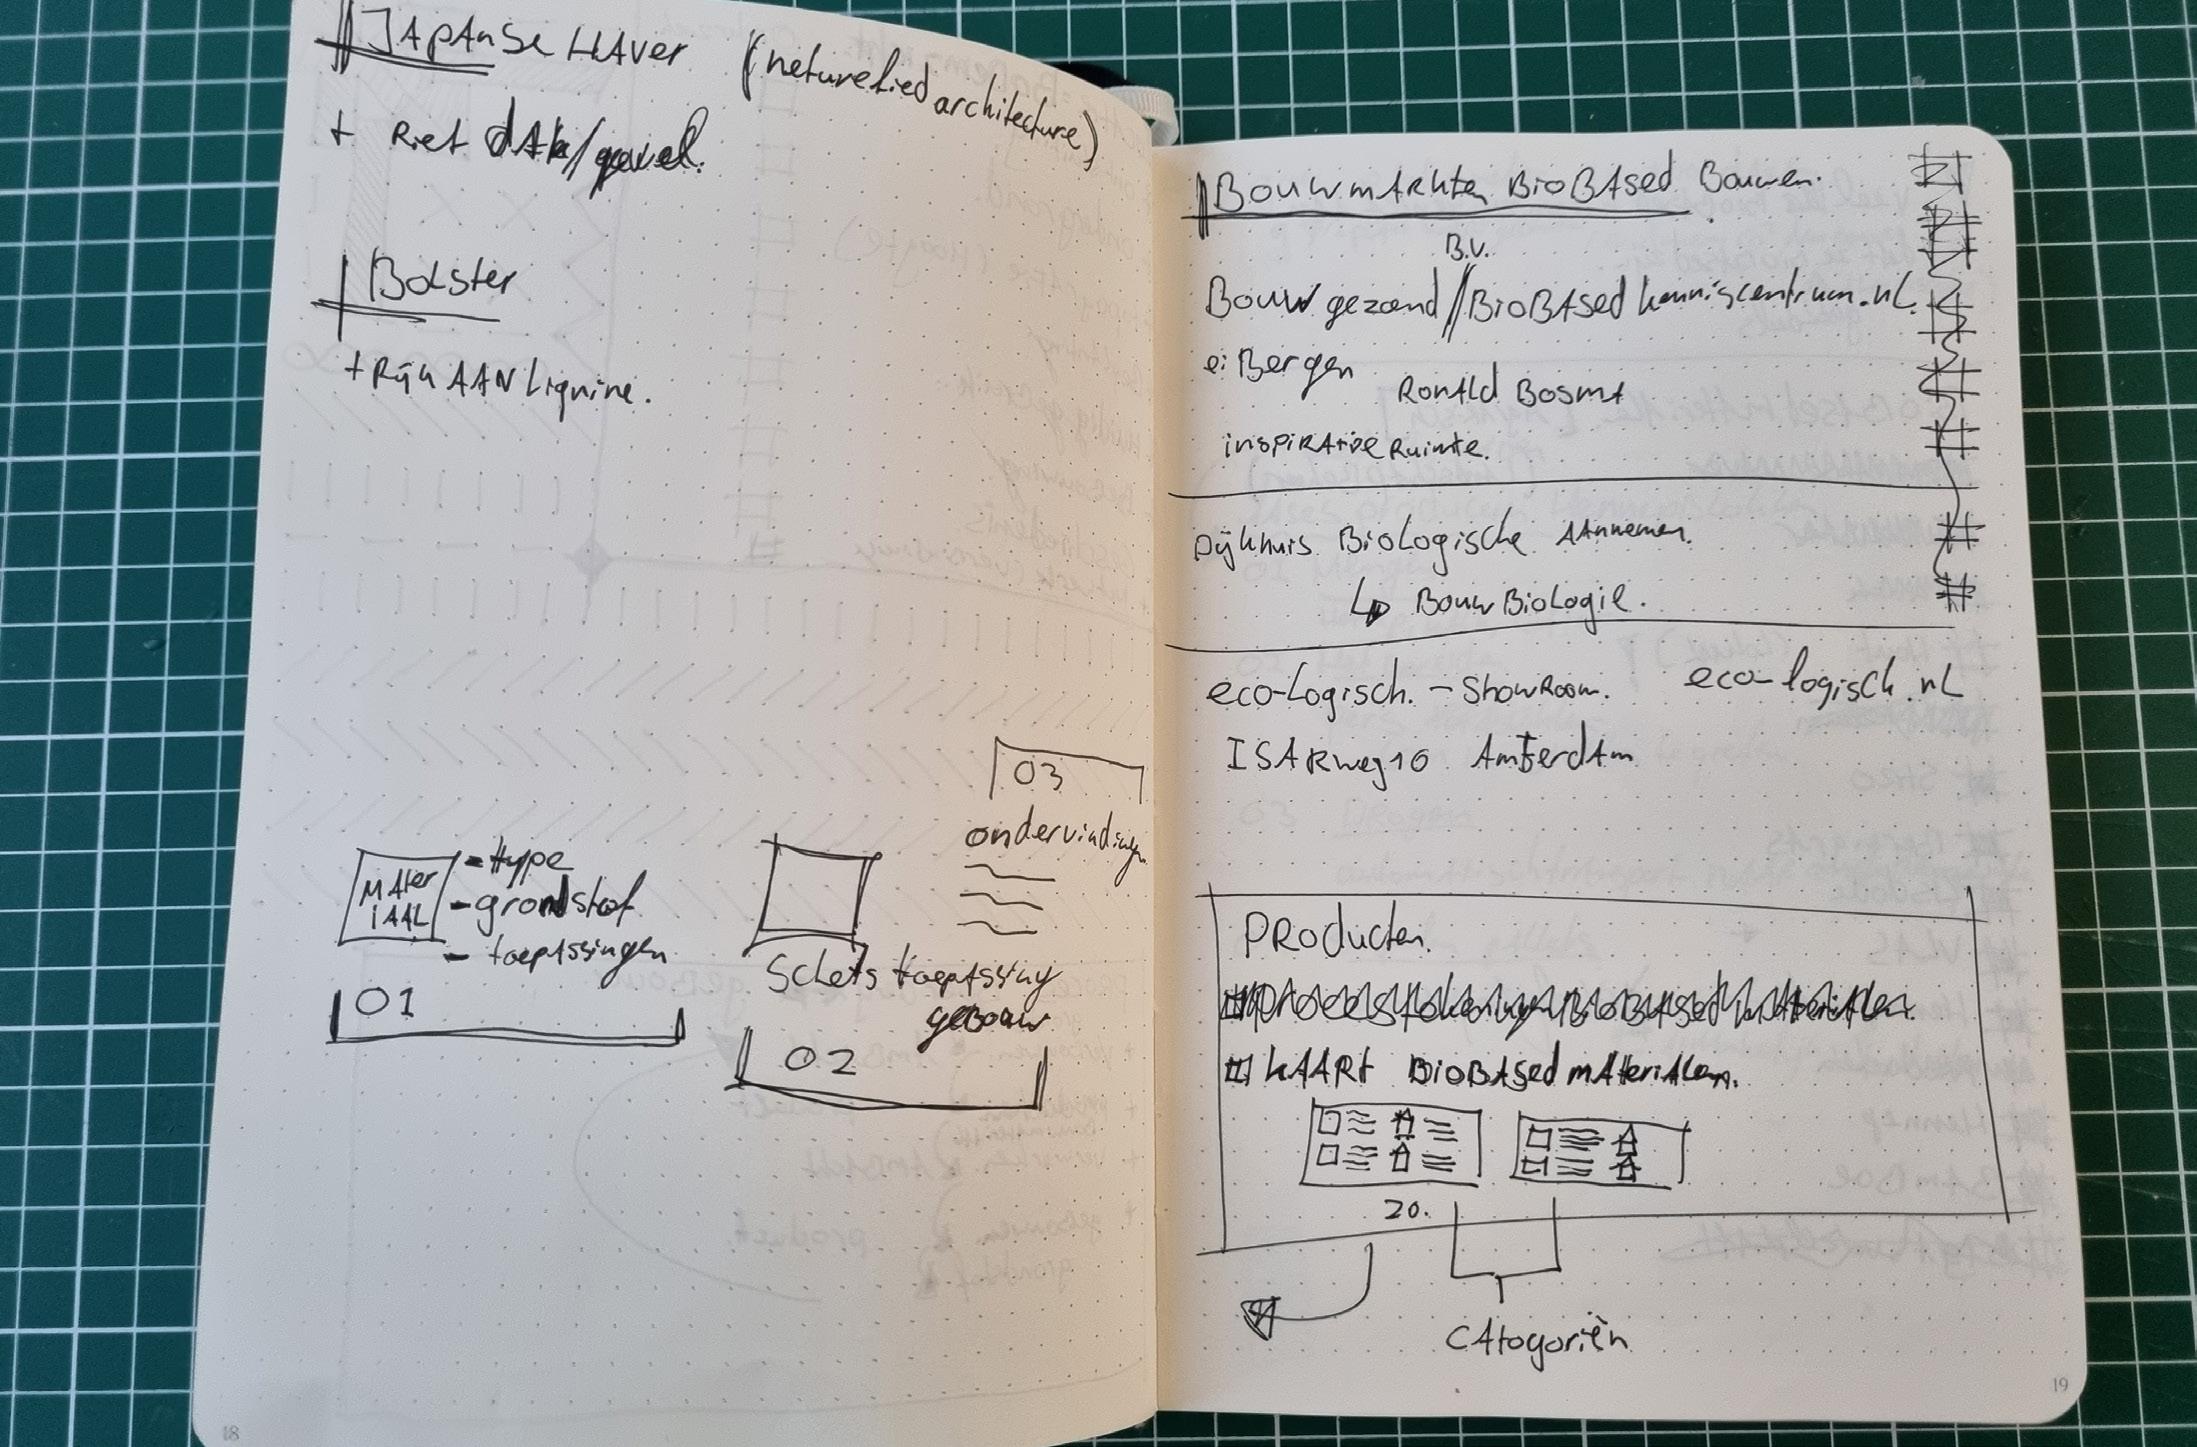 JAPANSE HAVER (neturelied architecture)
+ Riet dAk/gevel.
Bolster
+ Rijk AAN Lignine.
03
ondervindingen
MAter
iAAL
- type
- grondstof
- toepassingen
01
Schets toepassing
gebouw
02
18
BOUWMARKten BIOBASed Bouwen.
B.V.
Bouw gezond // BIOBASed kenniscentrum.nl
eiBergen
RonAld BosmA
inspiRAtie Ruimte.
Dijkhuis BioLogische AAnnemer.
↳ BouwBioLogie.
eco-Logisch. - ShowRoom. eco-logisch.nL
ISARweg 10 AmsterdAm
PRoducten.
# kAARt BioBASed mAteriALen.
20.
CAtogoriën
19